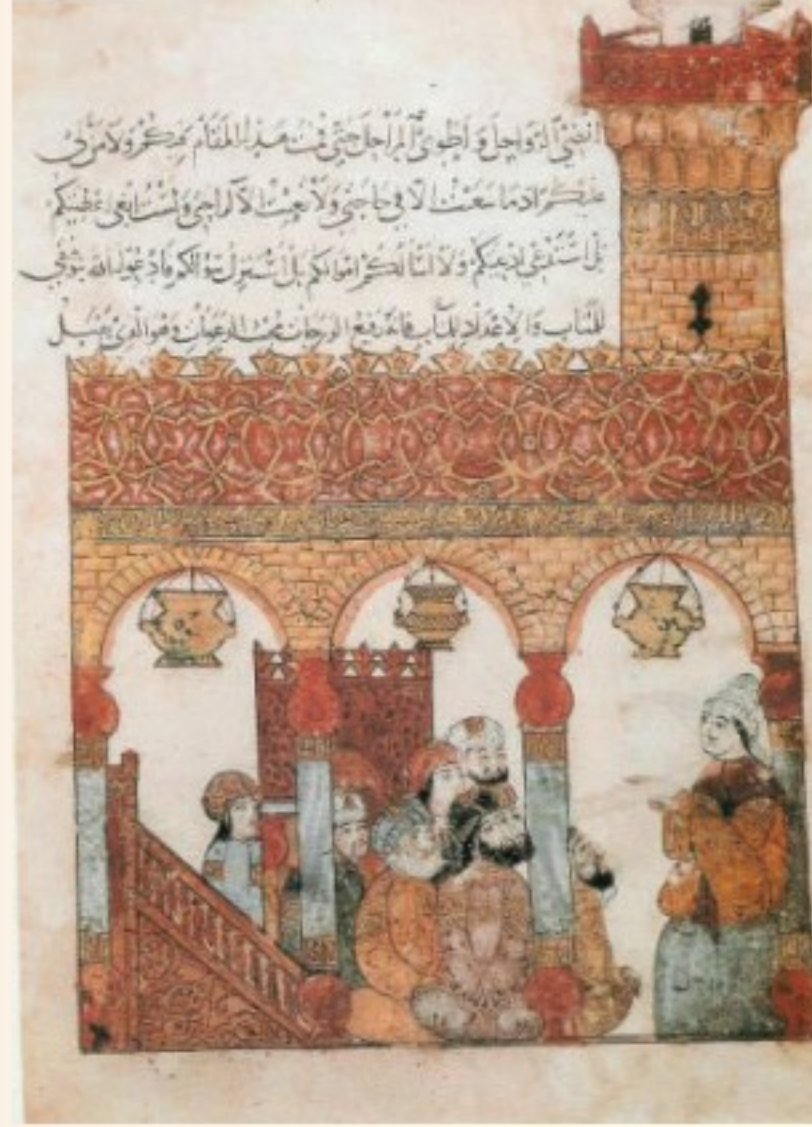 انضي الرواحل واطوي المراحل حتى قمت هذا المقام بكم ولا من لي
عليكم اذ ما سعيت الا في حاجتي ولا تعبت الا لراحتي ولست ابغي اعطيتكم
بل استدعي ادعيتكم ولا اسألكم اموالكم بل استنزل سؤالكم فادعوا الله بتوفيقي
للمتاب والاعداد للمآب فانه رفيع الدرجات مجيب الدعوات وهو الذي يقبل